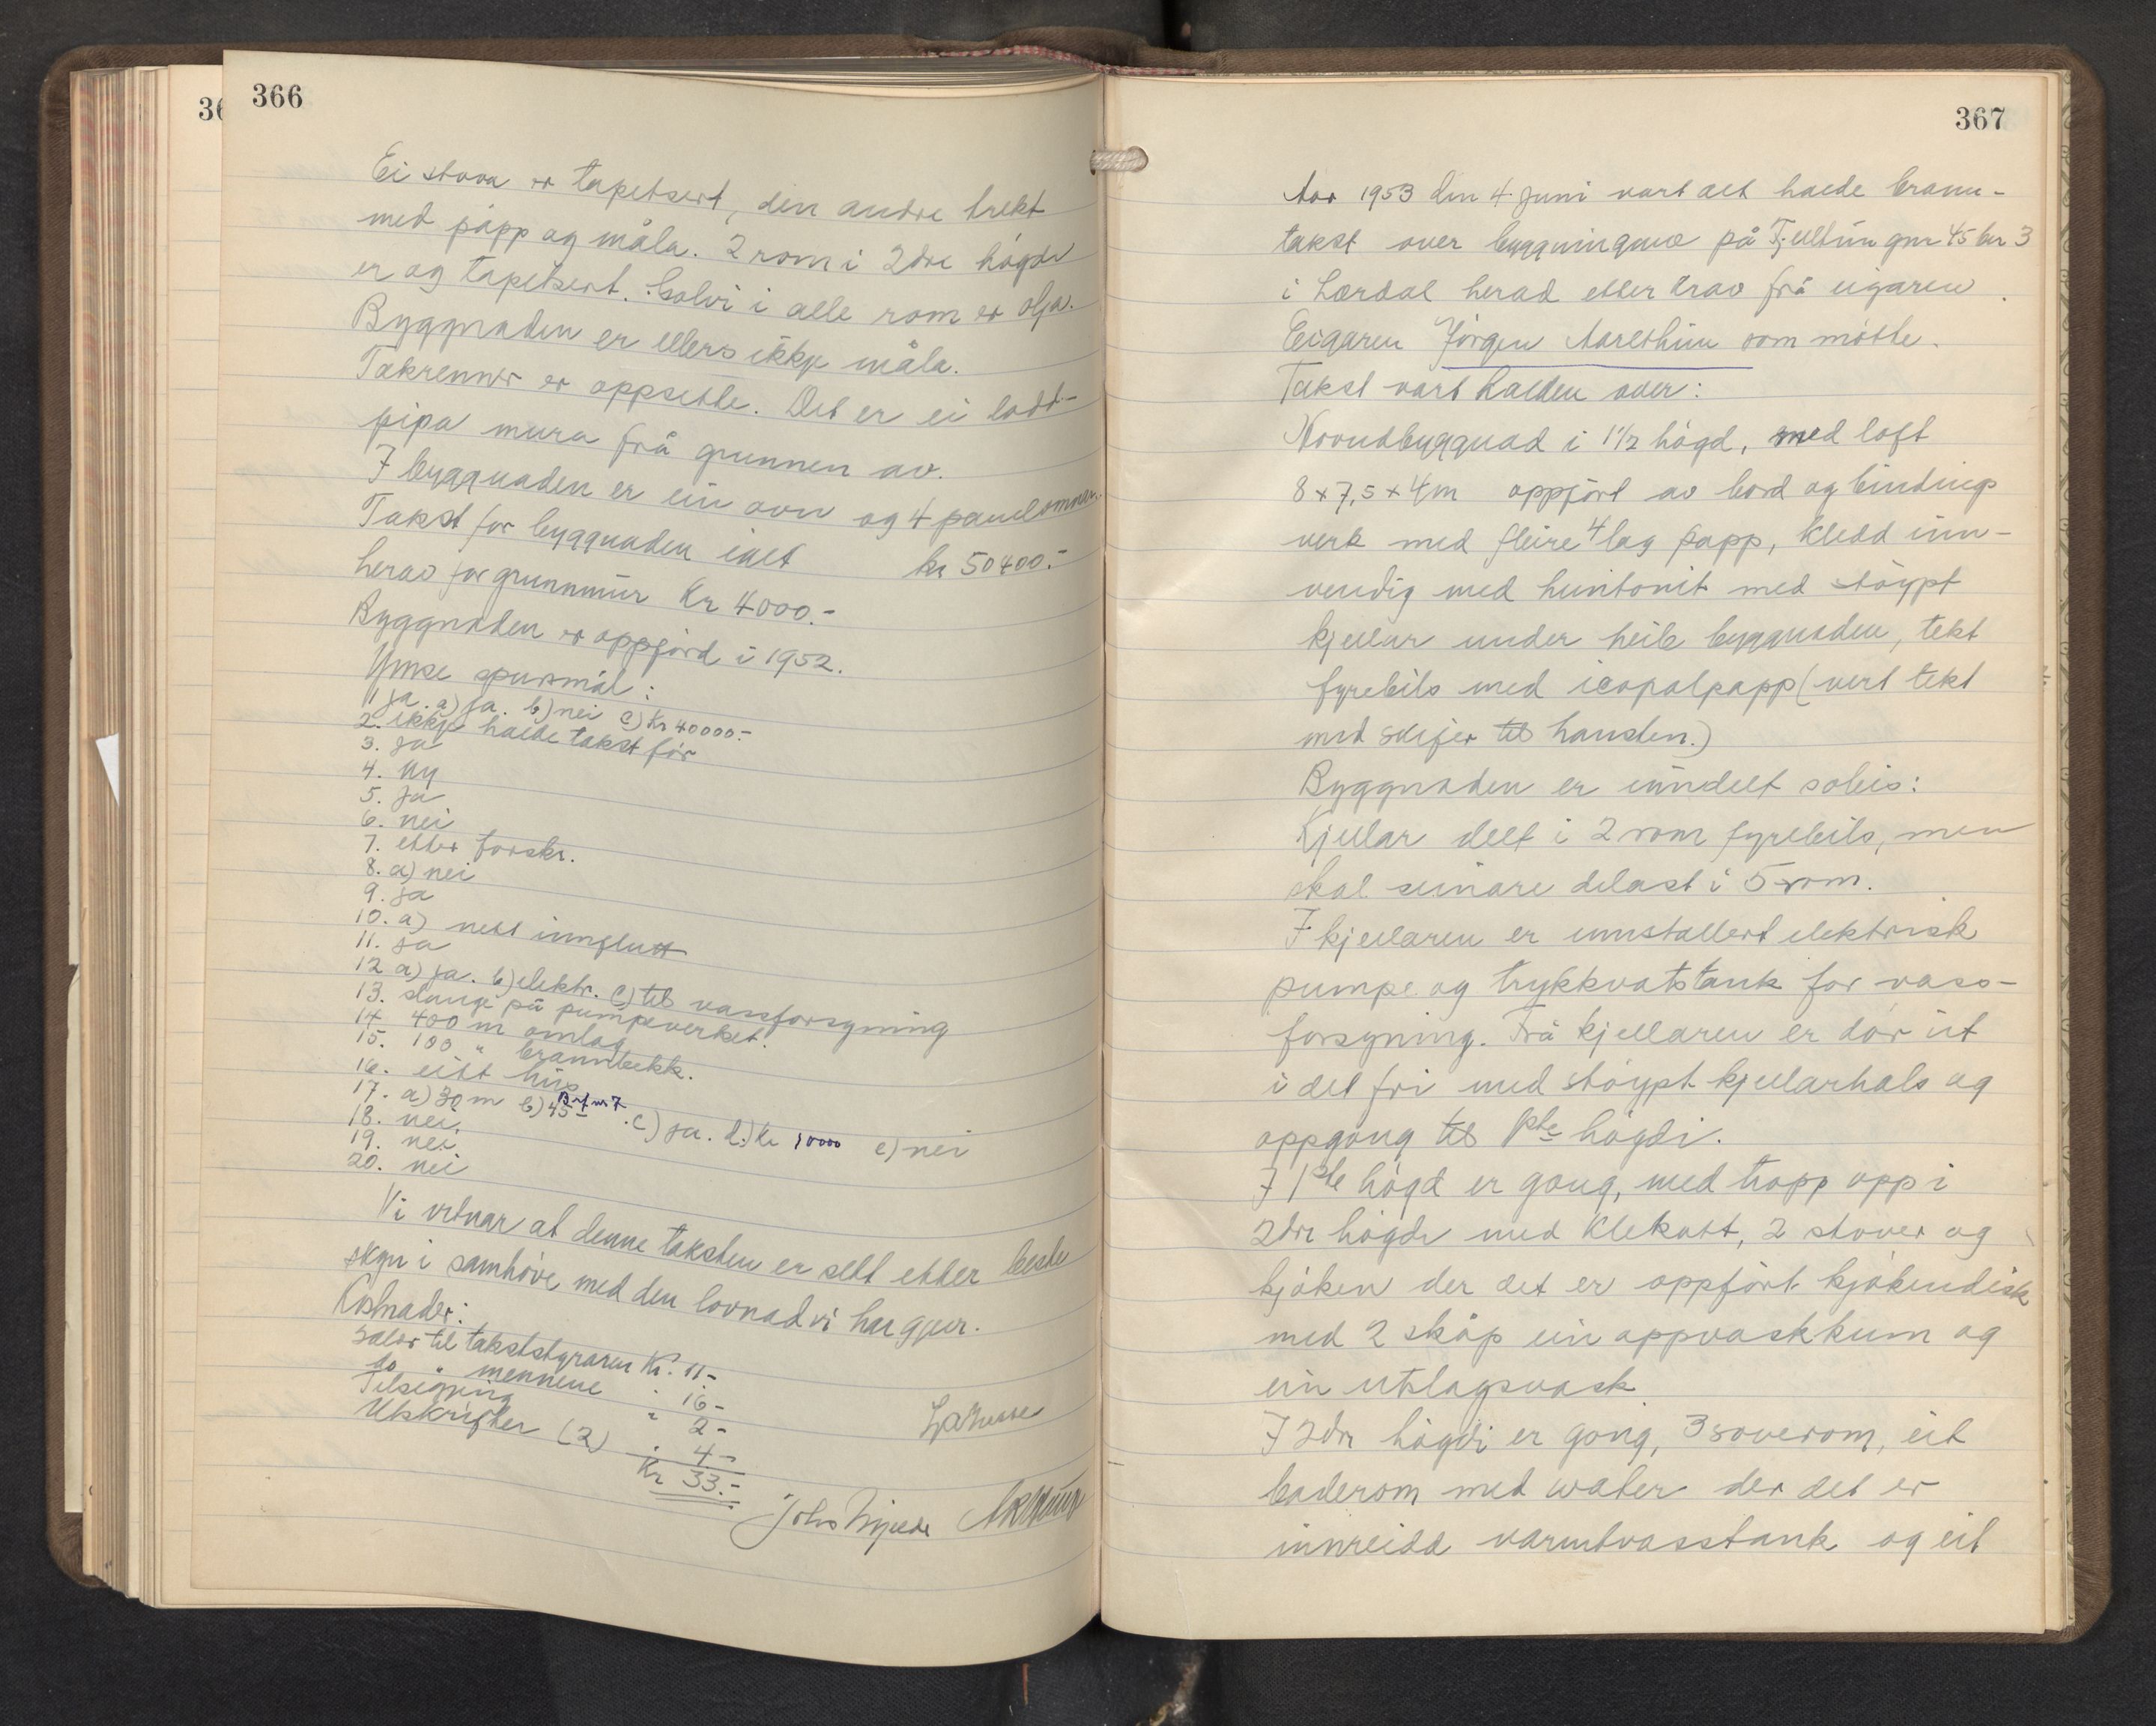 366
Ei stova er tapetsert, den andre trekt
med papp og måla. 2 rom i 2dre høgdi
er og tapetsert. Golvi i alle rom er olja.
Byggnaden er ellers ikkje måla.
Takrenner er oppsette. Det er ei lodd-
pipa mura frå grunnen av.
I byggnaden er ein ovn og 4 panelomnar.
Takst for byggnaden ialt kr 50400.-
herav for grunnmur Kr 4000.-
Byggnaden er oppførd i 1952.
Ymse spursmål:
1 ja. a) ja. b) nei c) Kr 40000.-
2. ikkje halde takst før
3. ja
4. ny
5. ja
6. nei
7. etter forskr.
8. a) nei
9. ja
10. a) nett innflutt
11. ja
12 a) ja. b) elektr. c) til vassforsyning
13. slange på pumpeverket.
14. 400 m omlag
15. 100 " brannbekk.
16. eitt hus
17. a) 30 m b) 45 Br.f nr 7. c) ja. d.) kr 10000 e) nei
18. nei.
19. nei
20. nei
Vi vitnar at denne taksten er sett etter beste
skyn i samhøve med den lovnad vi har gjeve.
Kostnader:
Salær til takststyraren Kr. 11.-
do " mennene " 16-
Tilsegjing " 2-
Utskrifter (2) " 4-
Kr 33.-
367
Aar 1953 den 4. juni vart det halde brann-
takst over bygningane på Fjelltun gnr 45 bnr 3
i Lærdal herad etter krav frå eigaren.
Eigaren Jørgen Aarethun som møtte.
Takst vart halden over:
Hovudbyggnad i 1 1/2 høgd, med loft
8 x 7,5 x 4 m oppført av bord og bindings
verk med fleire 4 lag papp, kledd inn-
vendig med huntonit med støypt
kjellar under heile byggnaden, tekt
fyrebils med icopalpapp (vert tekt
med skifer til hausten.)
Byggnaden er inndelt soleis:
Kjellar delt i 2 rom fyrebils, men
skal seinare delast i 5 rom.
I kjellaren er innstallert elektrisk
pumpe og trykkvatstank for vass-
forsyning. Frå kjellaren er dør ut
i det fri med støypt kjellarhals og
oppgang til 1ste høgdi.
I 1ste høgd er gong, med trapp opp i
2dre høgdi med klekott, 2 stover og
kjøken der det er oppført kjøkendisk
med 2 skåp ein oppvaskkum og
ein utslagsvask
I 2dre høgdi er gong, 3 soverom, eit
baderom med water der det er
innreidd varmtvasstank og eit